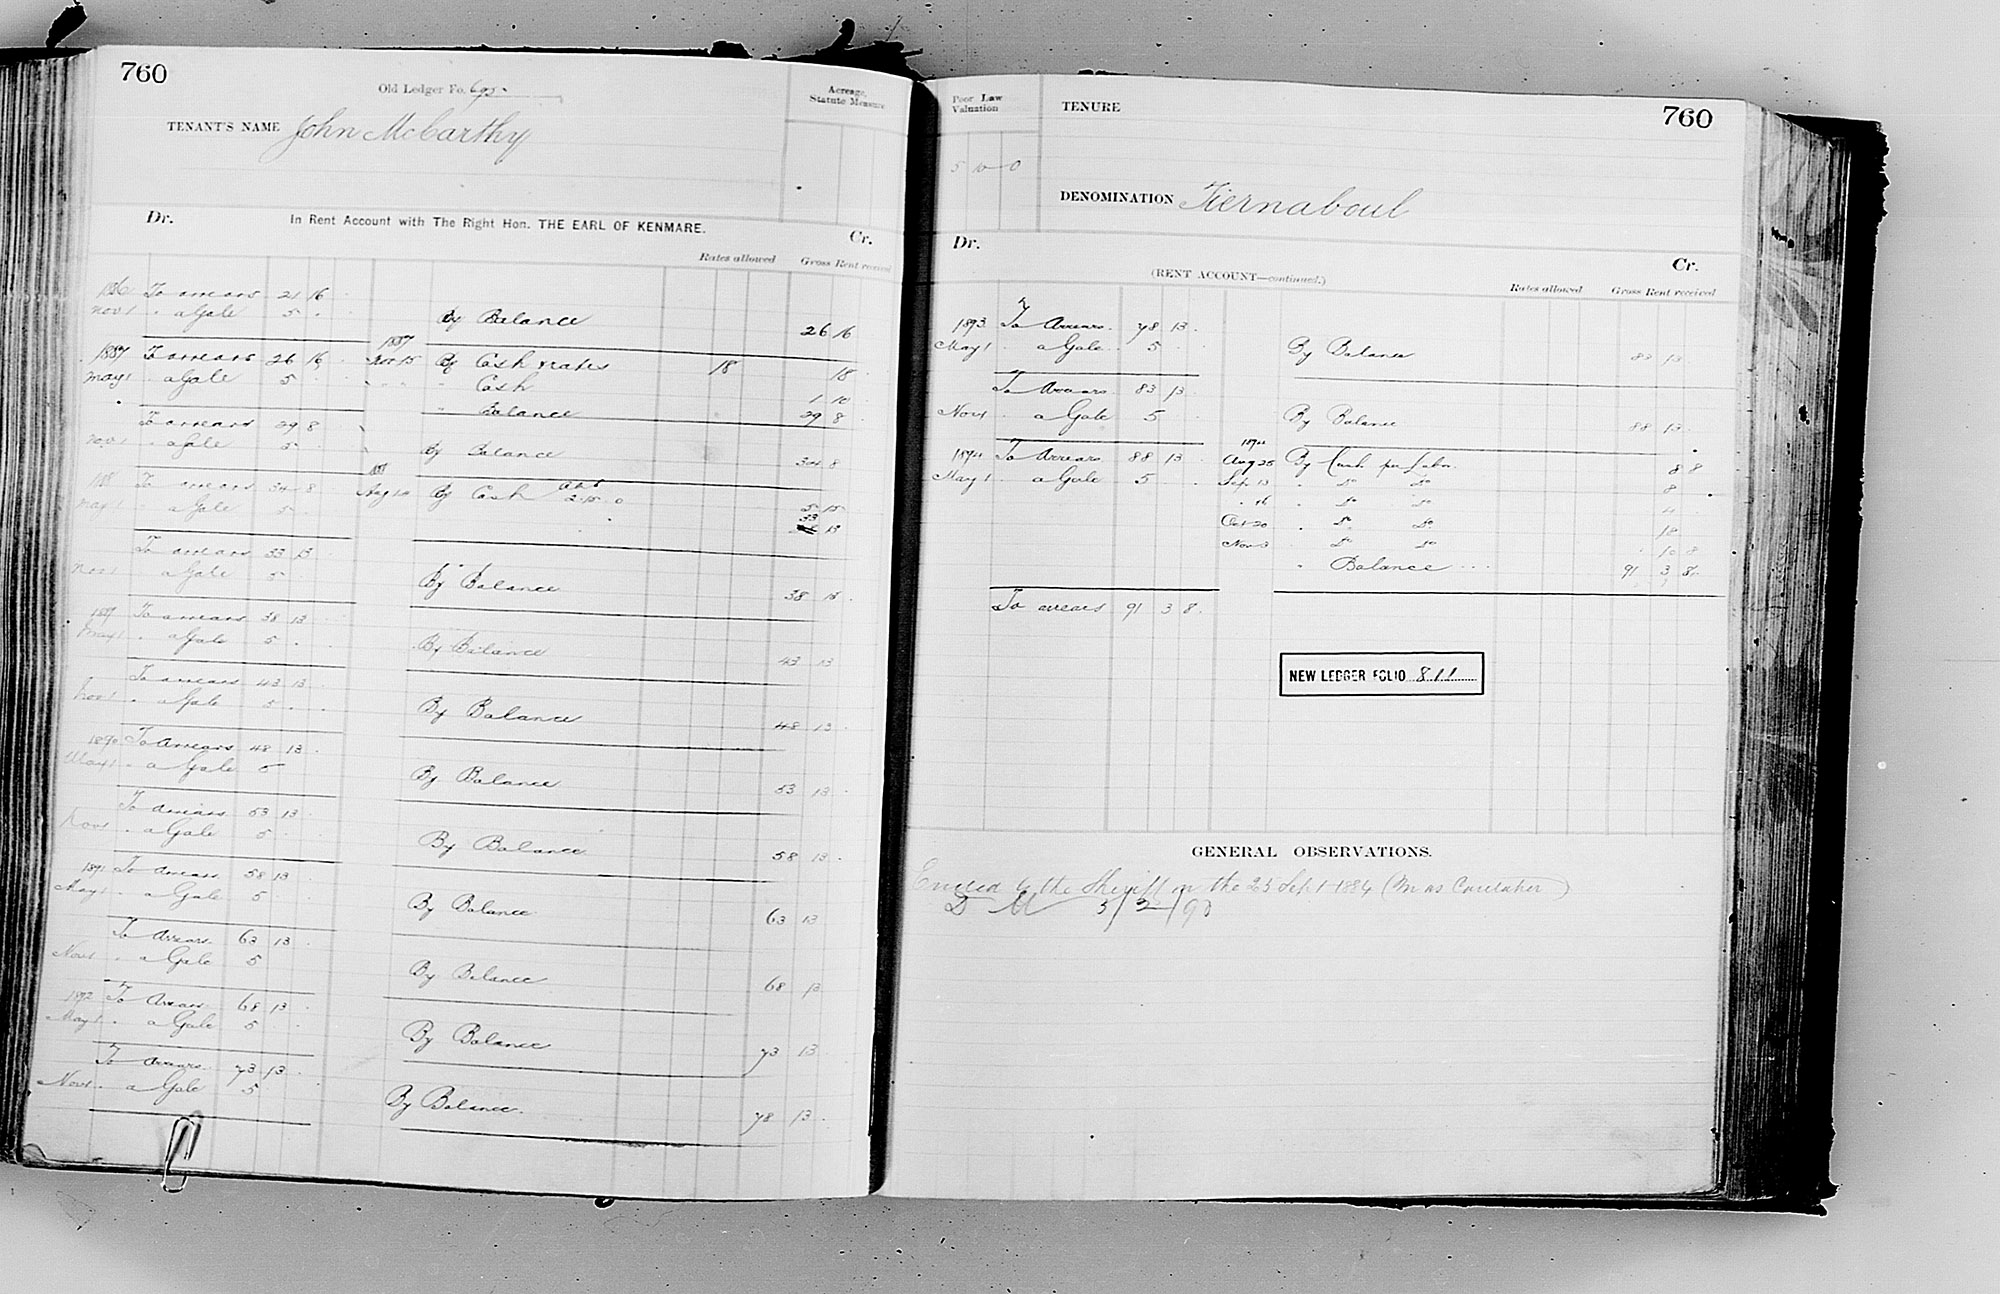 760
Old Ledger Fo. 695
Acreage, Statute Measure
TENANT'S NAME John McCarthy
Dr. In Rent Account with The Right Hon. THE EARL OF KENMARE. Cr.
Rates allowed Gross Rent received
1886 To arrears 21 16
Nov 1 " a Gale 5 By Balance 26 16
1887 To arrears 26 16 1887 Nov 15 By Cash & rates 18 18
May 1 " a Gale 5 " Cash 1 10
" Balance 29 8
To arrears 29 8
Nov 1 " a Gale 5 By Balance 34 8
188 To arrears 34 8 By Cash 2.15.0 5 15
May 1 " a Gale 5 33 13
To arrears 33 13
Nov 1 a Gale 5 By Balance 38 13
1889 To arrears 38 13
May 1 " a Gale 5 By Balance 43 13
To arrears 43 13
Nov 1 " a Gale 5 By Balance 48 13
1890 To Arrears 48 13
May 1 " a Gale 5 By Balance 53 13
To Arrears 53 13
Nov 1 " a Gale 5 By Balance 58 13
1891 To Arrears 58 13
May 1 " a Gale 5 By Balance 63 13
To Arrears 63 13
Nov 1 " a Gale 5 By Balance 68 13
1892 To Arrears 68 13
May 1 " a Gale 5 By Balance 73 13
To Arrears 73 13
Nov 1 " a Gale 5 By Balance 78 13
Poor Law Valuation
TENURE
760
5 10 0
DENOMINATION Tiernaboul
Dr. (RENT ACCOUNT—continued.) Cr.
Rates allowed Gross Rent received
1893 To Arrears 78 13
May 1 a Gale 5 By Balance 83 13
To Arrears 83 13
Nov 1 a Gale 5 By Balance 88 13
1894 To Arrears 88 13 1894 Aug 25 By Cash per Labr. 8 8
May 1 a Gale 5 Sep 13 " Do Do 8
" 16 " Do Do
Oct 20 " Do Do 12
Nov 3 " Do Do 10 8
" Balance 91 3 8
To arrears 91 3 8
NEW LEDGER FOLIO 811
GENERAL OBSERVATIONS.
Evicted by the Sheriff on the 25 Sept 1884 (In as Caretaker)
D M 3/2/90